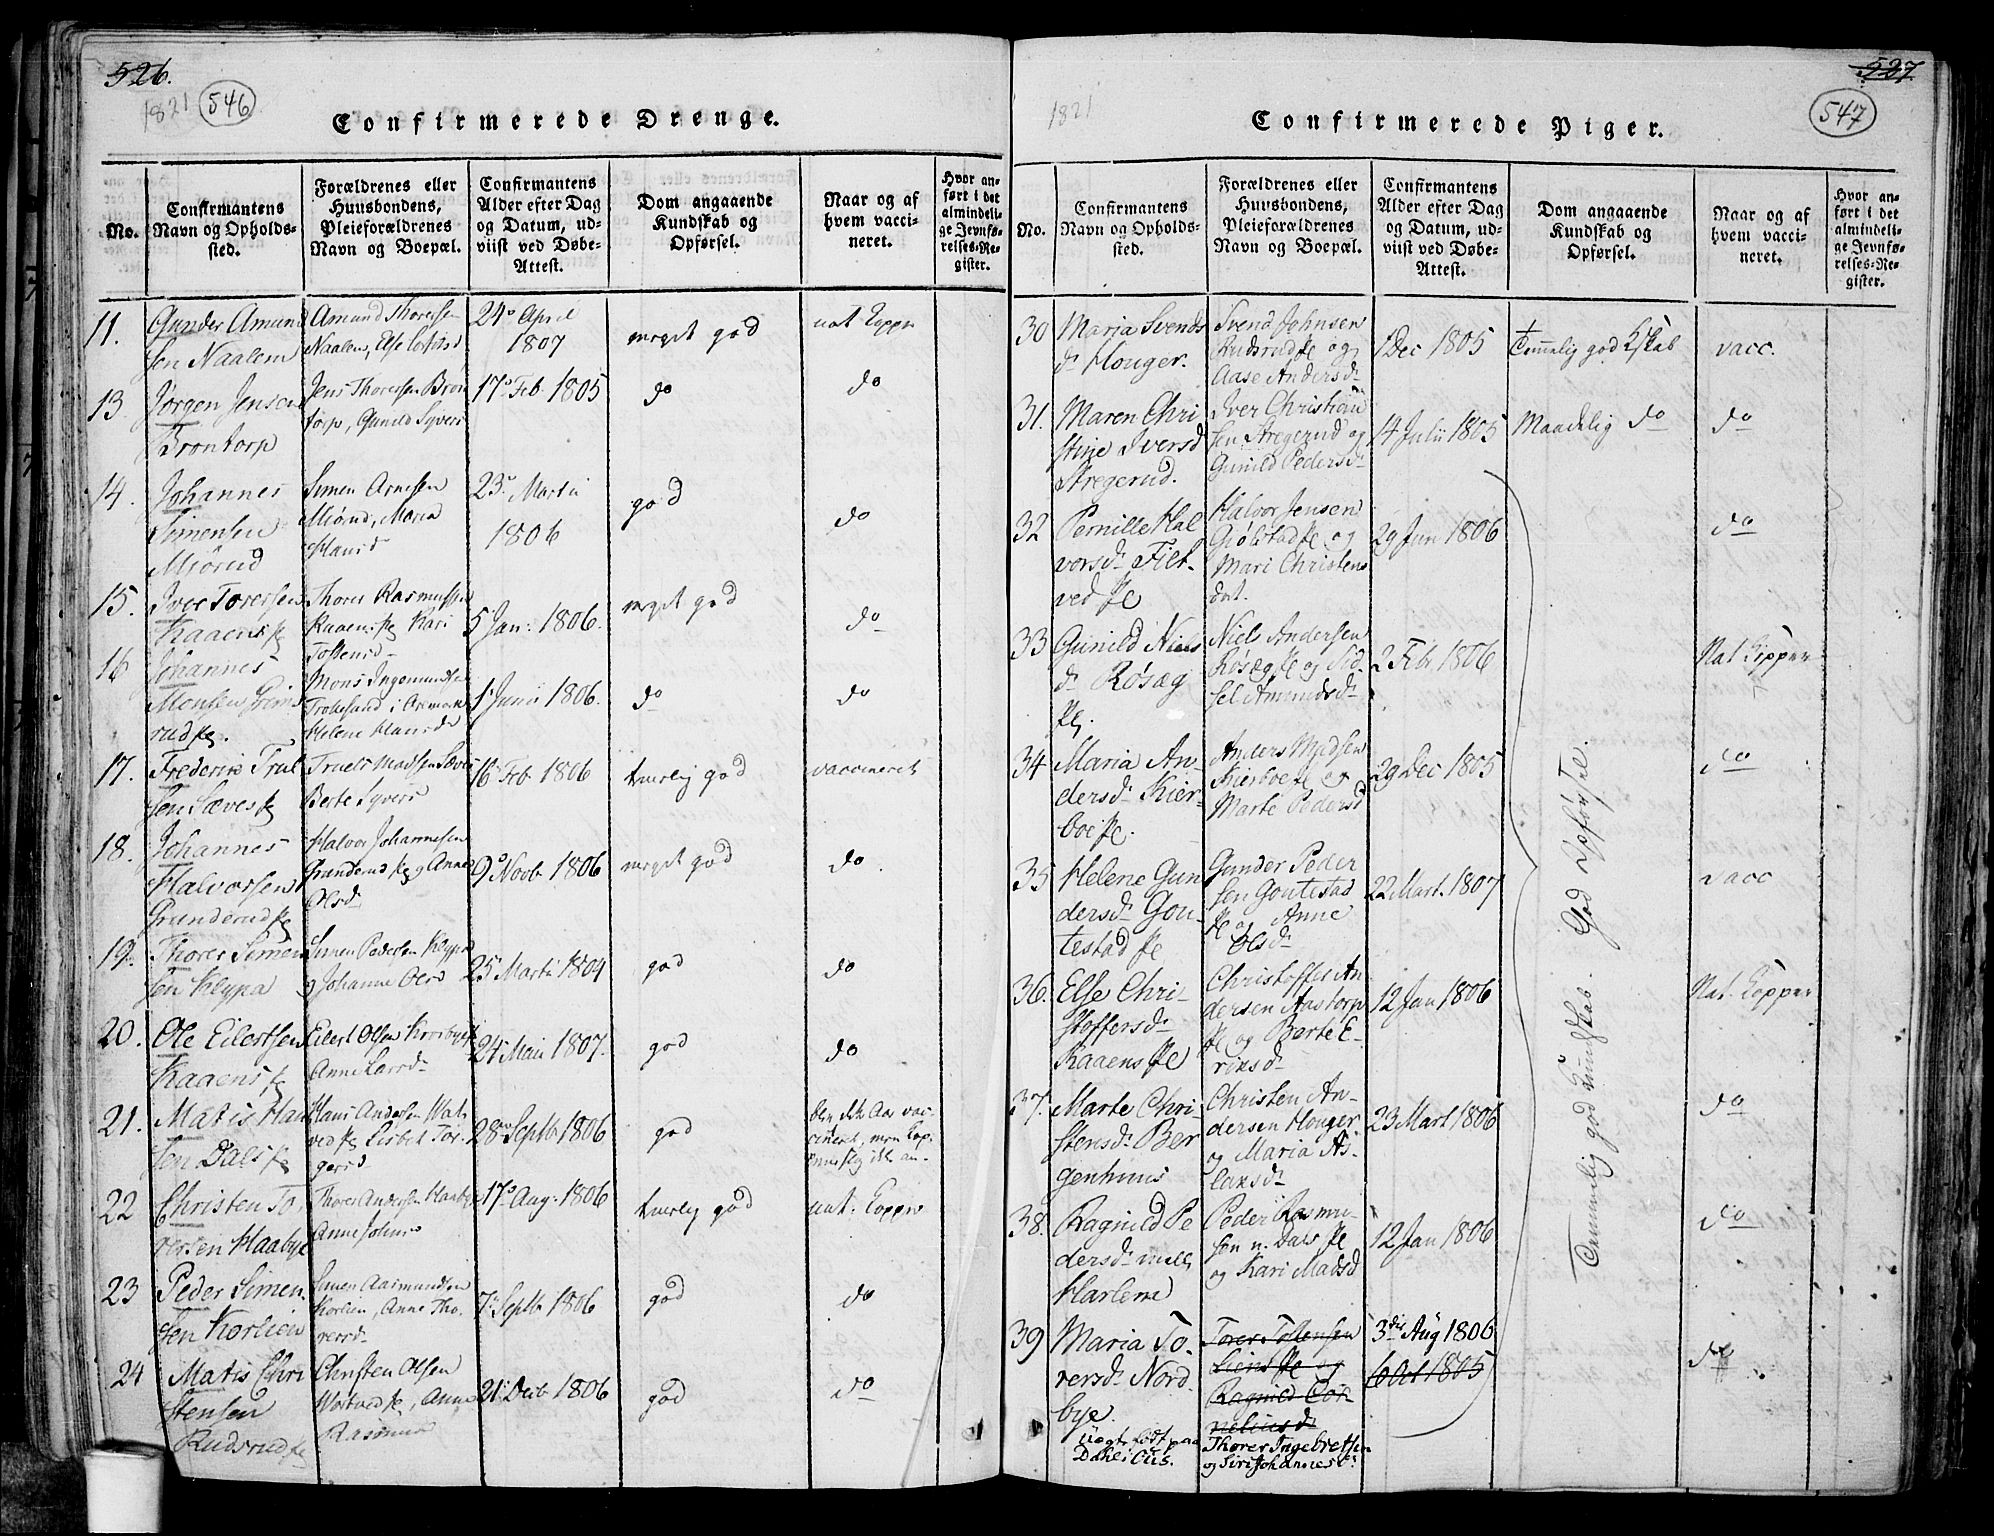 526.
1821 546
Confirmerede Drenge.
No.
Confirmantens
Navn og Opholds-
sted.
Forældrenes eller
Huusbondens,
Pleieforældrenes
Navn og Boepæl.
Confirmantens
Alder efter Dag
og Datum, ud-
viist ved Døbe-
Attest.
Dom angaaende
Kundskab og
Opførsel.
Naar og af
hvem vacci-
neret.
Hvor an-
ført i det
almindeli-
ge Jevnfø-
relses-Re-
gister.
11.
Gunder Amund
sen Naalem
Amund Thoresen
Naalem, Else
24 April
1807
meget god
nat Kopper
13.
Jørgen Jensen
Brontorp
Jens Thoresen Bron
torp, Gunild Syvers
17 Feb 1805
do
do
14.
Johannes
Simensen
Miørud
Simen Arnesen
Miørud, Maria
Hansd
23 Martii
1806
god
do
15.
Iver Toresen
Kaaens
Thorer Rasmussen
Kaaens Kari
Tostensd
5 Jan: 1806.
meget god
do
16
Johannes
Monsen Grims
rud
Mons Ingemundsen
i Aremark
Helene Hansd
1 Junii 1806.
do
do
17.
Frederic Trul
sen Sæves
Truels Madsen Sæves
Berte Syvers
16 Feb 1806
god
vaccineret
18.
Johannes
Halvorsen
Grunderud
Halvor Johannesen
Grunderud og Anne
Olsd
9 Novb 1806
meget god
do
19.
Thorer Simen
sen Klypa
Simen Pedersen Klypa
og Johanne Olsd
25 Martii 1804
god
do
20.
Ole Eilertsen
Kaaens
Eilert Olsen
Anne Larsd
24 Maii 1807.
god
do
21.
Matis Han
sen Dals
Hans Andersen
ved Lisbet Tor-
gersd
28 Septb 1806
god
den dette Aar vac-
cineret, men Kop-
22
Christen To
resen Haabye
Thorer Andersen Haabye
Anne Johns
17 Aug: 1806
god
nat. Kopper
23
Peder Simen
sen Korlien
Simen Aasmundsen
Korlien, Anne Tho-
resd
7 Septb 1806
god
do
24
Matis Chri
stensen
Rudsrud
Christen Olsen
Anne
Rasmus
21 Decb 1806
god
do
527
1821
547
Confirmerede Piger.
No.
Confirmantens
Navn og Opholds-
sted.
Forældrenes eller
Huusbondens,
Pleieforældrenes
Navn og Boepæl.
Confirmantens
Alder efter Dag
og Datum, ud-
viist ved Døbe-
Attest.
Dom angaaende
Kundskab og
Opførsel.
Naar og af
hvem vacci-
neret.
Hvor an-
ført i det
almindeli-
ge Jevnfø-
relses-Re-
gister.
30
Maria Svends
d. Houger.
Svend Johnsen
Rudsrud og
Aase Andersd
1 Dec 1805
Temmelig god Kskab
vacc.
31.
Maren Chri
stine Iversd
Stregerud.
Iver Christian
sen Stregerud og
Gunild Pedersd
14 Julii 1805
Maadelig do
do
32
Pernille Hal
vorsd Filt-
ved
Halvor Jensen
Giølstad og
Mari Christens
dat.
29 Jun 1806
do
33
Gunild Niels
d. Røsæg
Niels Andersen
Røsæg og Sid
sel Amundsd
2 Feb 1806
Nat. Kopper
34
Maria An-
dersd Kier-
boe
Anders Madsen
Kierboe og
Marte Pedersd
29 Dec 1805
do
35
Helene Gun
dersd Gou-
testad
Gunder Peder
sen Goutestad
og Anne
Olsd
22 Mart. 1807
vacc
36.
Else Chri-
stoffersd
Kaaens
Christoffer An
dersen Aastorp
og Berte E-
riksd
12 Jan 1806
Nat. Kopper
37.
Marte Chri-
stensd Ber
genhuus
Christen An-
dersen Houger
og Maria As
laksd
23 Mart 1806
do
38.
Ragnild Pe
dersd
Harlem
Peder Rasmu-
sen n. Dals
og Kari Madsd
12 Jan 1806
do
Temmelig god Kundskab. God Opførsel.
39
Maria To-
rersd Nord-
bye.
uægte født paa
Dahl i Øis.
Torer Tostensen
Liens og
Ragnild Cor
neliusd
Thorer Ingebretsen
og Siri Johannesd:
3die Aug 1806
6 Oct 1805
do